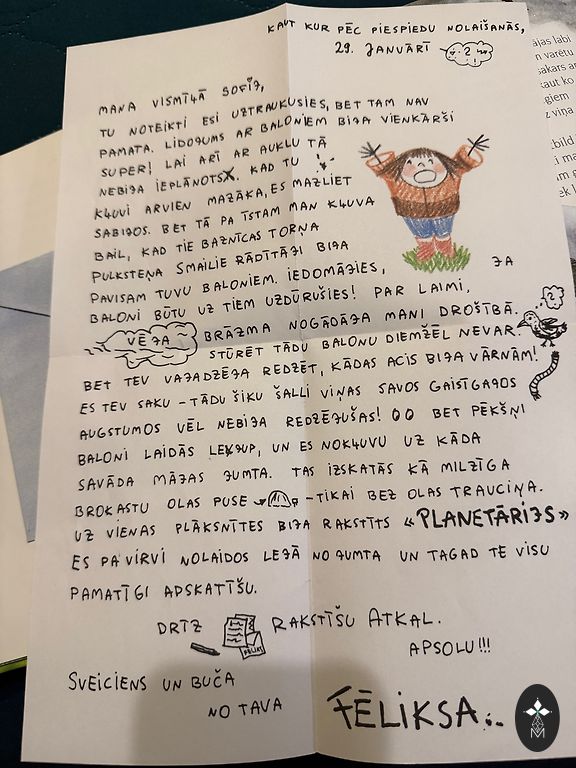 KAUT KUR PĒC PIESPIEDU NOLAIŠANĀS,
29. JANVĀRĪ ?
MANA VISMĪĻĀ SOFIJ,
TU NOTEIKTI ESI UZTRAUKUSIES, BET TAM NAV
PAMATA. LIDOJUMS AR BALONIEM BIJA VIENKĀRŠI
SUPER! LAI ARĪ AR AUKLU TĀ
NEBIJA IEPLĀNOTS. KAD TU
KĻUVI ARVIEN MAZĀKA, ES MAZLIET
SABIJOS. BET TĀ PA ĪSTAM MAN KĻUVA
BAIL, KAD TIE BAZNĪCAS TORŅA
PULKSTEŅA SMAILIE RĀDĪTĀJI BIJA
PAVISAM TUVU BALONIEM. IEDOMĀJIES, JA
BALONI BŪTU UZ TIEM UZDŪRUŠIES! PAR LAIMI,
VĒJA BRĀZMA NOGĀDĀJA MANI DROŠĪBĀ. ?
STŪRĒT TĀDU BALONU DIEMŽĒL NEVAR.
BET TEV VAJADZĒJA REDZĒT, KĀDAS ACIS BIJA VĀRNĀM!
ES TEV SAKU - TĀDU ŠIKU ŠALLI VIŅAS SAVOS GAISĪGAJOS
AUGSTUMOS VĒL NEBIJA REDZĒJUŠAS! BET PĒKŠŅI
BALONI LAIDĀS LEJUP, UN ES NOKĻUVU UZ KĀDA
SAVĀDA MĀJAS JUMTA. TAS IZSKATĀS KĀ MILZĪGA
BROKASTU OLAS PUSE - TIKAI BEZ OLAS TRAUCIŅA.
UZ VIENAS PLĀKSNĪTES BIJA RAKSTĪTS «PLANETĀRIJS»
ES PA VIRVI NOLAIDOS LEJĀ NO JUMTA UN TAGAD TE VISU
PAMATĪGI APSKATĪŠU.
DRĪZ RAKSTĪŠU ATKAL.
APSOLU!!!
SVEICIENS UN BUČA
NO TAVA
FĒLIKSA...